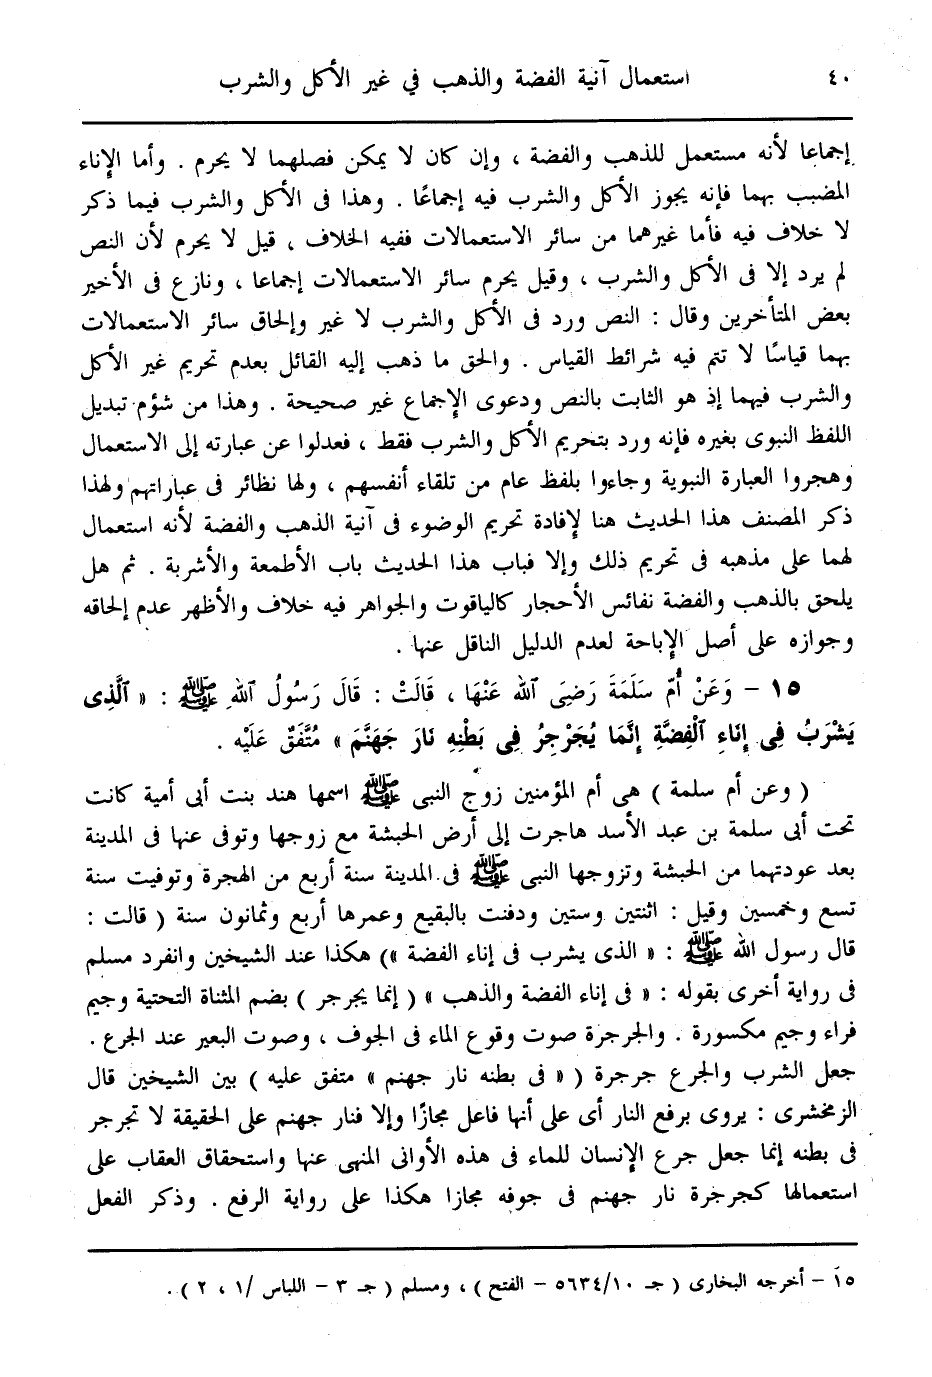 ٤٠ استعمال آنية الفضة والذهب في غير الأكل والشرب
إجماعا لأنه مستعمل للذهب والفضة ، وإن كان لا يمكن فصلهما لا يحرم . وأما الإناء
المضبب بهما فإنه يجوز الأكل والشرب فيه إجماعًا . وهذا فى الأكل والشرب فيما ذكر
لا خلاف فيه فأما غيرهما من سائر الاستعمالات ففيه الخلاف ، قيل لا يحرم لأن النص
لم يرد إلا فى الأكل والشرب ، وقيل يحرم سائر الاستعمالات إجماعا ، ونازع فى الأخير
بعض المتأخرين وقال : النص ورد فى الأكل والشرب لا غير وإلحاق سائر الاستعمالات
بهما قياسًا لا تتم فيه شرائط القياس . والحق ما ذهب إليه القائل بعدم تحريم غير الأكل
والشرب فيهما إذ هو الثابت بالنص ودعوى الإجماع غير صحيحة . وهذا من شؤم تبديل
اللفظ النبوى بغيره فإنه ورد بتحريم الأكل والشرب فقط ، فعدلوا عن عبارته إلى الاستعمال
وهجروا العبارة النبوية وجاءوا بلفظ عام من تلقاء أنفسهم ، ولها نظائر فى عباراتهم ولهذا
ذكر المصنف هذا الحديث هنا لإفادة تحريم الوضوء فى آنية الذهب والفضة لأنه استعمال
لهما على مذهبه فى تحريم ذلك وإلا فباب هذا الحديث باب الأطعمة والأشربة . ثم هل
يلحق بالذهب والفضة نفائس الأحجار كالياقوت والجواهر فيه خلاف والأظهر عدم إلحاقه
وجوازه على أصل الإباحة لعدم الدليل الناقل عنها .
١٥ – وَعَنْ أُمّ سَلَمَةَ رَضِىَ ٱللهُ عَنْهَا ، قَالَتْ : قَالَ رَسُولُ ٱللهِ ﷺ : « ٱلَّذِى
يَشْرَبُ فِى إِنَاءِ ٱلْفِضَّةِ إِنَّمَا يُجَرْجِرُ فِى بَطْنِهِ نَارَ جَهَنَّمَ » مُتَّفَقٌ عَلَيْهِ .
( وعن أم سلمة ) هى أم المؤمنين زوج النبى ﷺ اسمها هند بنت أبى أمية كانت
تحت أبى سلمة بن عبد الأسد هاجرت إلى أرض الحبشة مع زوجها وتوفى عنها فى المدينة
بعد عودتهما من الحبشة وتزوجها النبى ﷺ فى المدينة سنة أربع من الهجرة وتوفيت سنة
تسع وخمسين وقيل : اثنتين وستين ودفنت بالبقيع وعمرها أربع وثمانون سنة ( قالت :
قال رسول الله ﷺ : « الذى يشرب فى إناء الفضة ») هكذا عند الشيخين وانفرد مسلم
فى رواية أخرى بقوله : « فى إناء الفضة والذهب » ( إنما يجرجر ) بضم المثناة التحتية وجيم
فراء وجيم مكسورة . والجرجرة صوت وقوع الماء فى الجوف ، وصوت البعير عند الجرع .
جعل الشرب والجرع جرجرة ( « فى بطنه نار جهنم » متفق عليه ) بين الشيخين قال
الزمخشرى : يروى برفع النار أى على أنها فاعل مجازًا وإلا فنار جهنم على الحقيقة لا تجرجر
فى بطنه إنما جعل جرع الإنسان للماء فى هذه الأوانى المنهى عنها واستحقاق العقاب على
استعمالها كجرجرة نار جهنم فى جوفه مجازا هكذا على رواية الرفع . وذكر الفعل
١٥ – أخرجه البخارى ( جـ ٥٦٣٤/١٠ – الفتح ) ، ومسلم ( جـ ٣ – اللباس /١ ، ٢ ) .